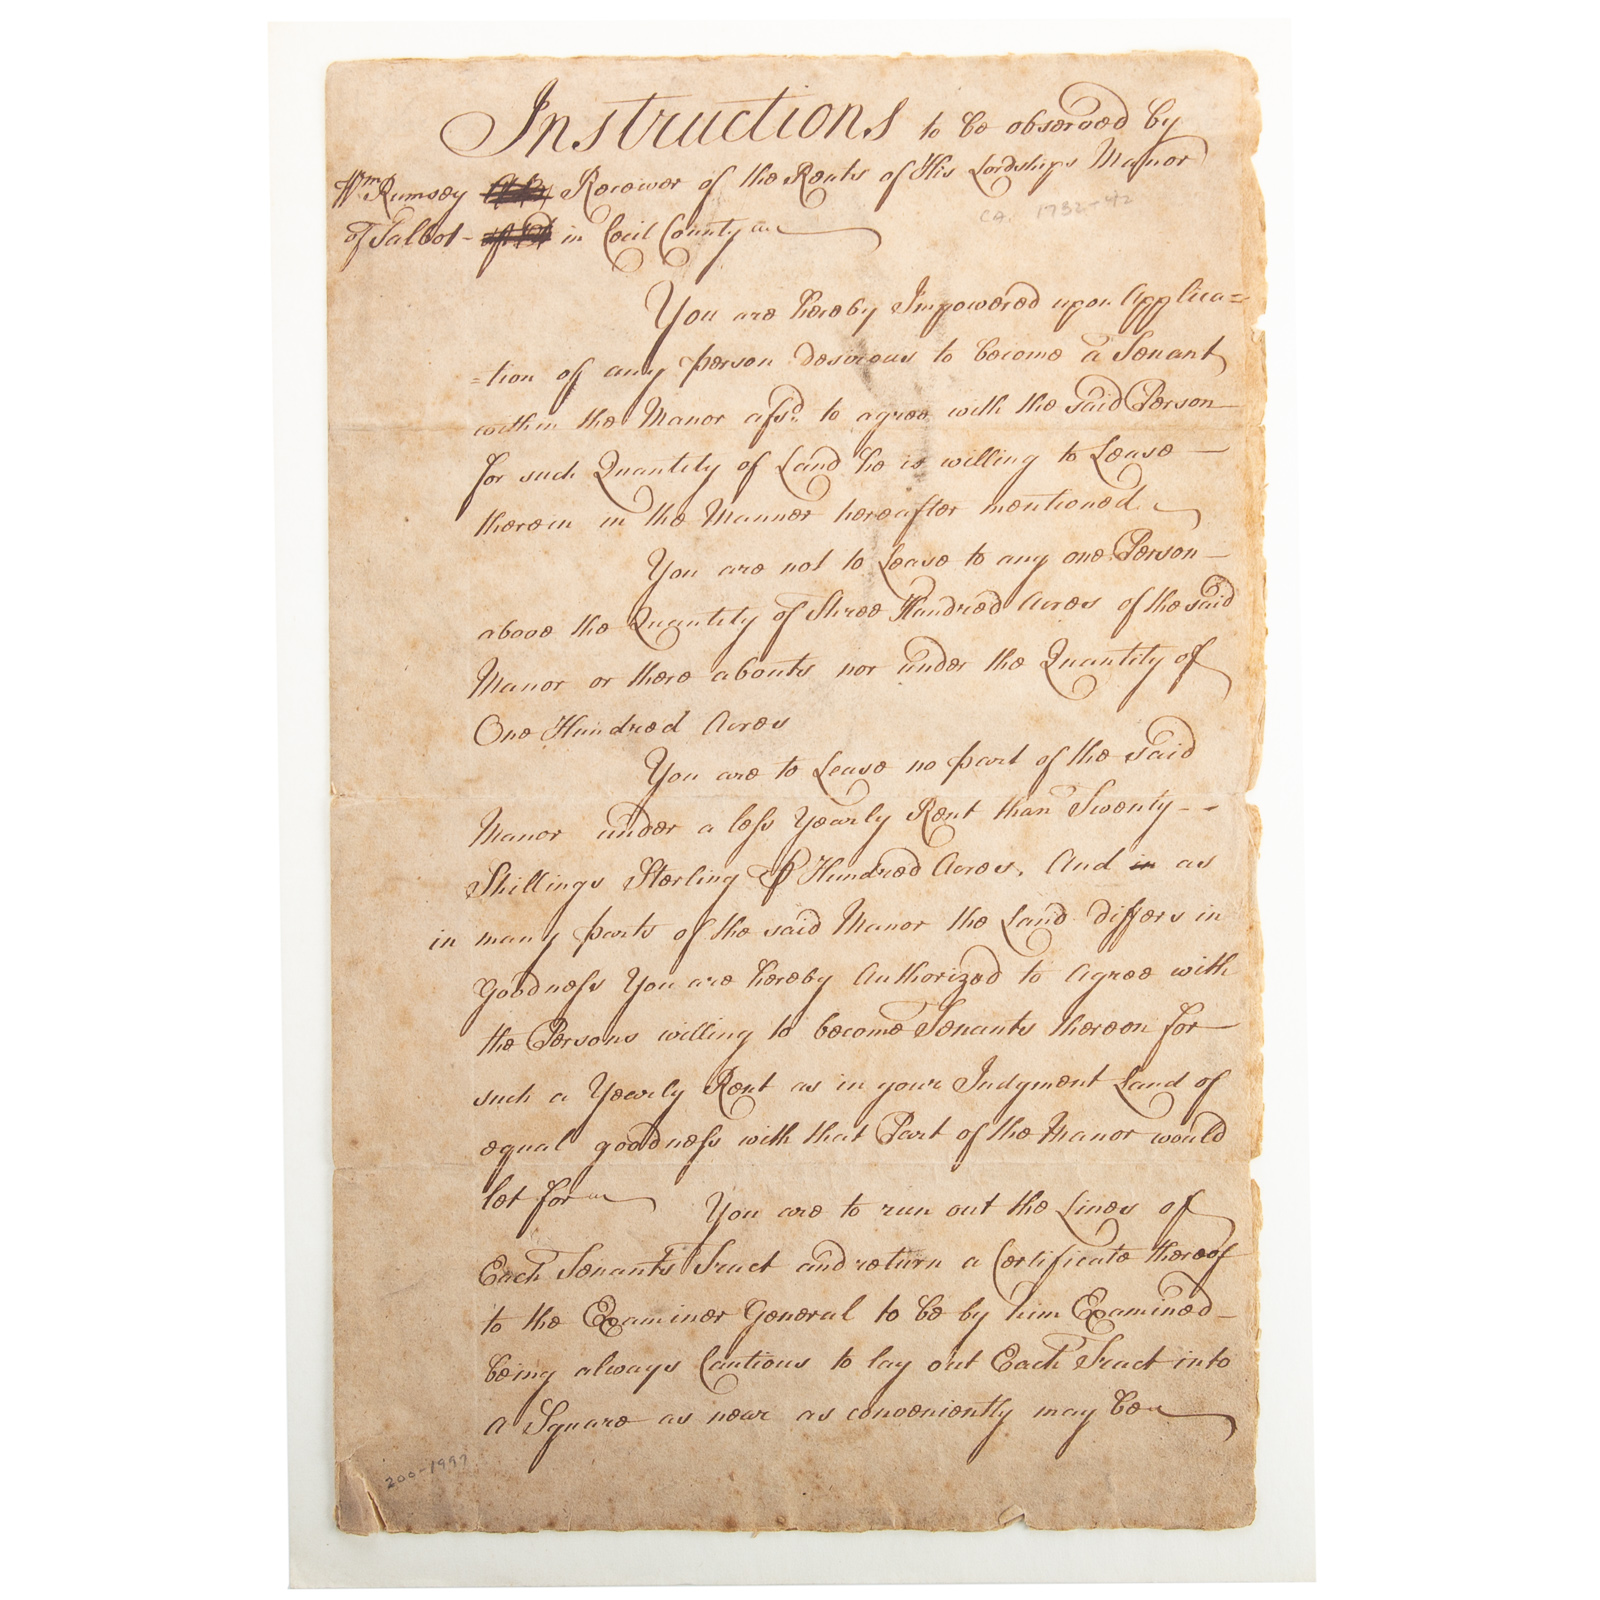 Instructions to be observed by
Wm Rumsey Receiver of the Rents of His Lordships Manor
CA. 1732-42
of Talbot - in Cecil County
You are hereby Impowered upon Applica=
=tion of any person desireous to become a Tenant
within the Manor afsd. to agree with the said Person
for such Quantity of Land he is willing to Lease
therein in the Manner hereafter mentioned
You are not to Lease to any one Person
above the Quantity of Three Hundred Acres of the said
Manor or there abouts nor under the Quantity of
One Hundred Acres
You are to Lease no part of the said
Manor under a less Yearly Rent than Twenty - -
Shillings Sterling ⅌ Hundred Acres. And in as
in many parts of the said Manor the Land differs in
Goodness You are hereby Authorized to Agree with
the Persons willing to become Tenants thereon for
such a Yearly Rent as in your Judgment Land of
equal goodness with that Part of the Manor would
let for You are to run out the Lines of
Each Tenants Tract and return a Certificate thereof
to the Examiner General to be by him Examined
being always Cautious to lay out Each Tract into
a Square as near as conveniently may be
200-1997